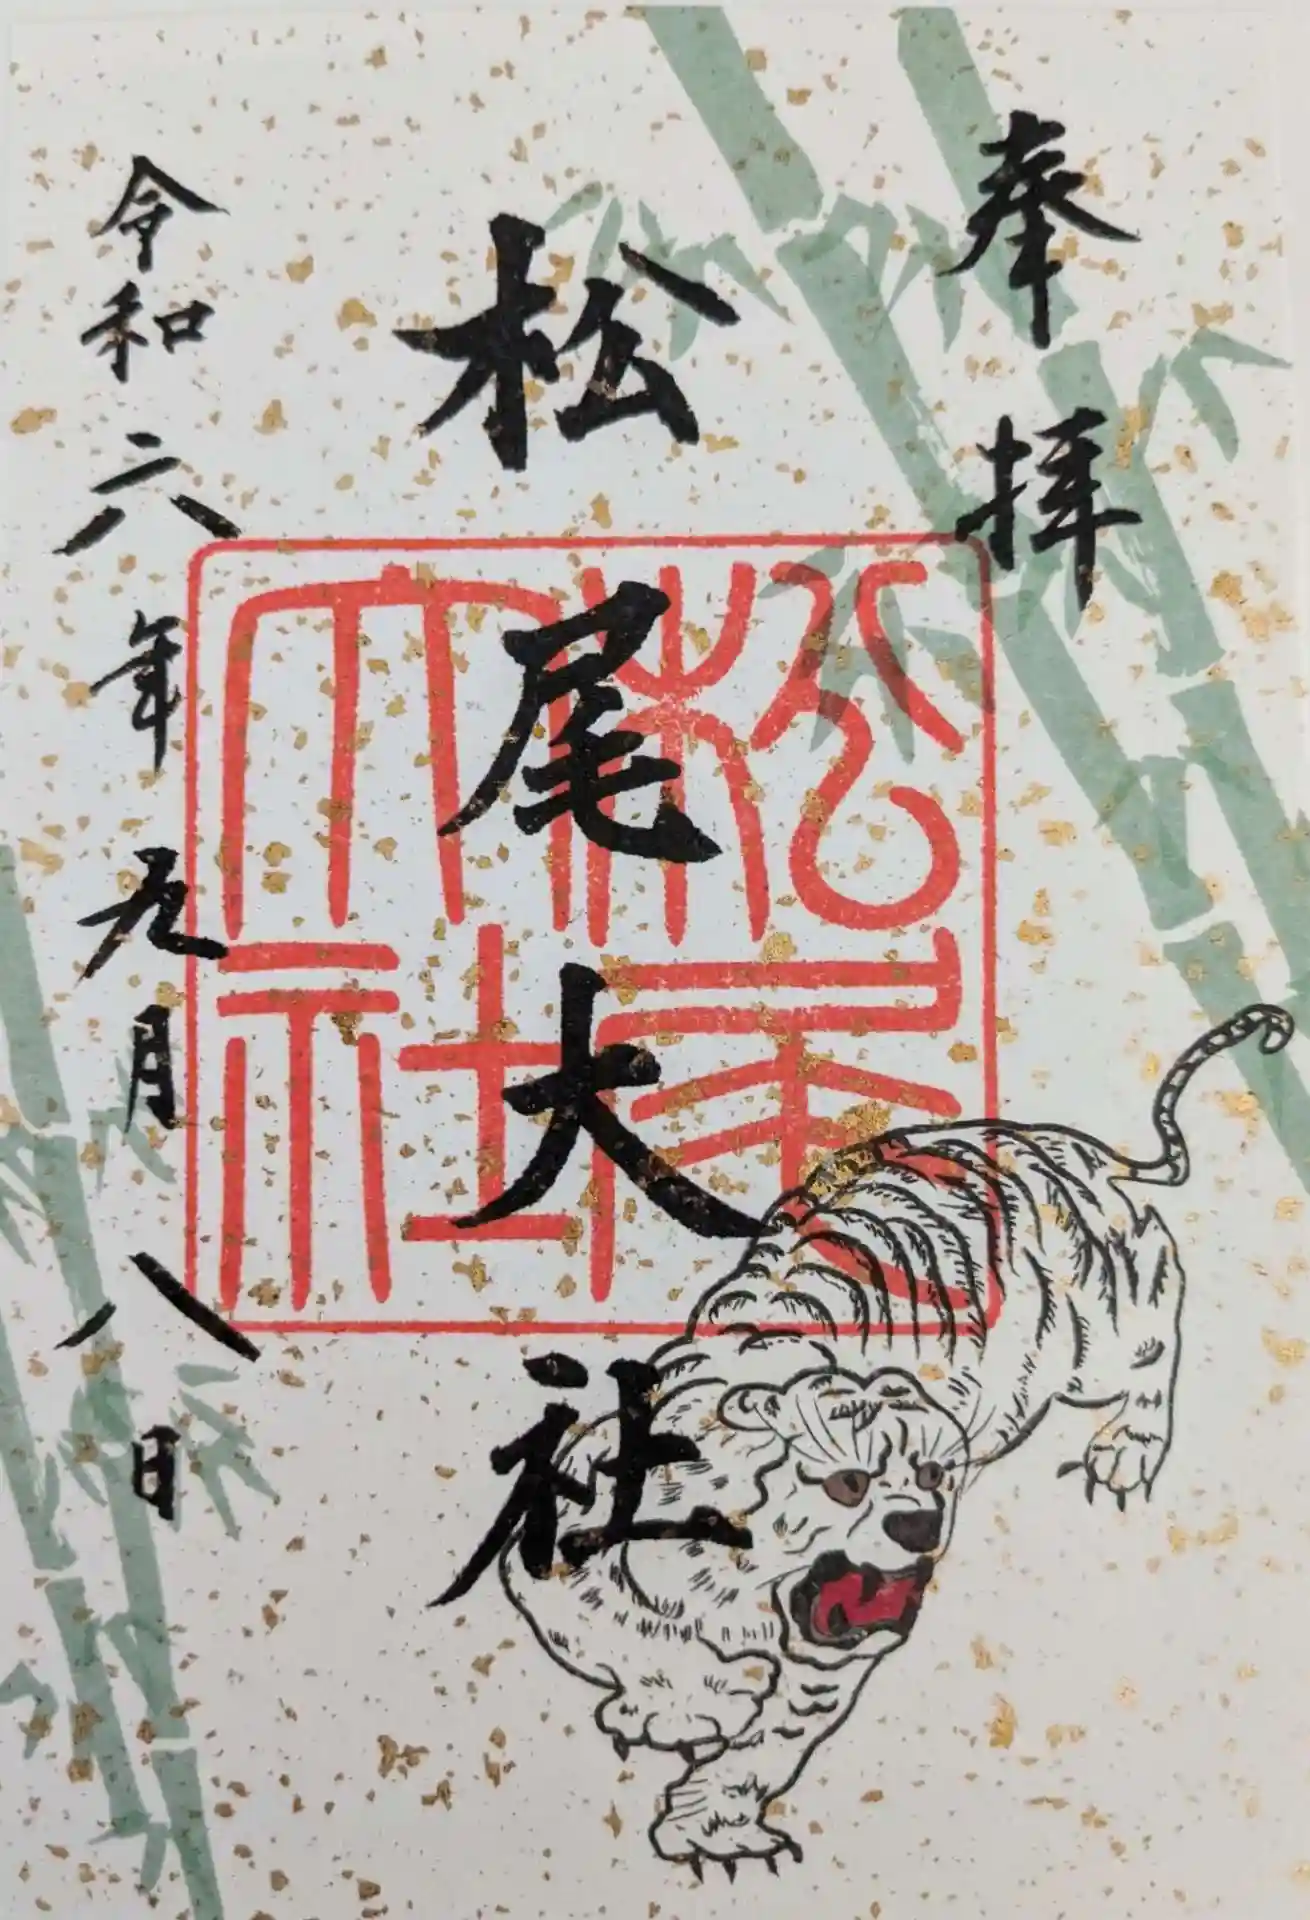 奉拝
松尾大社
松尾大社
令和六年九月八日